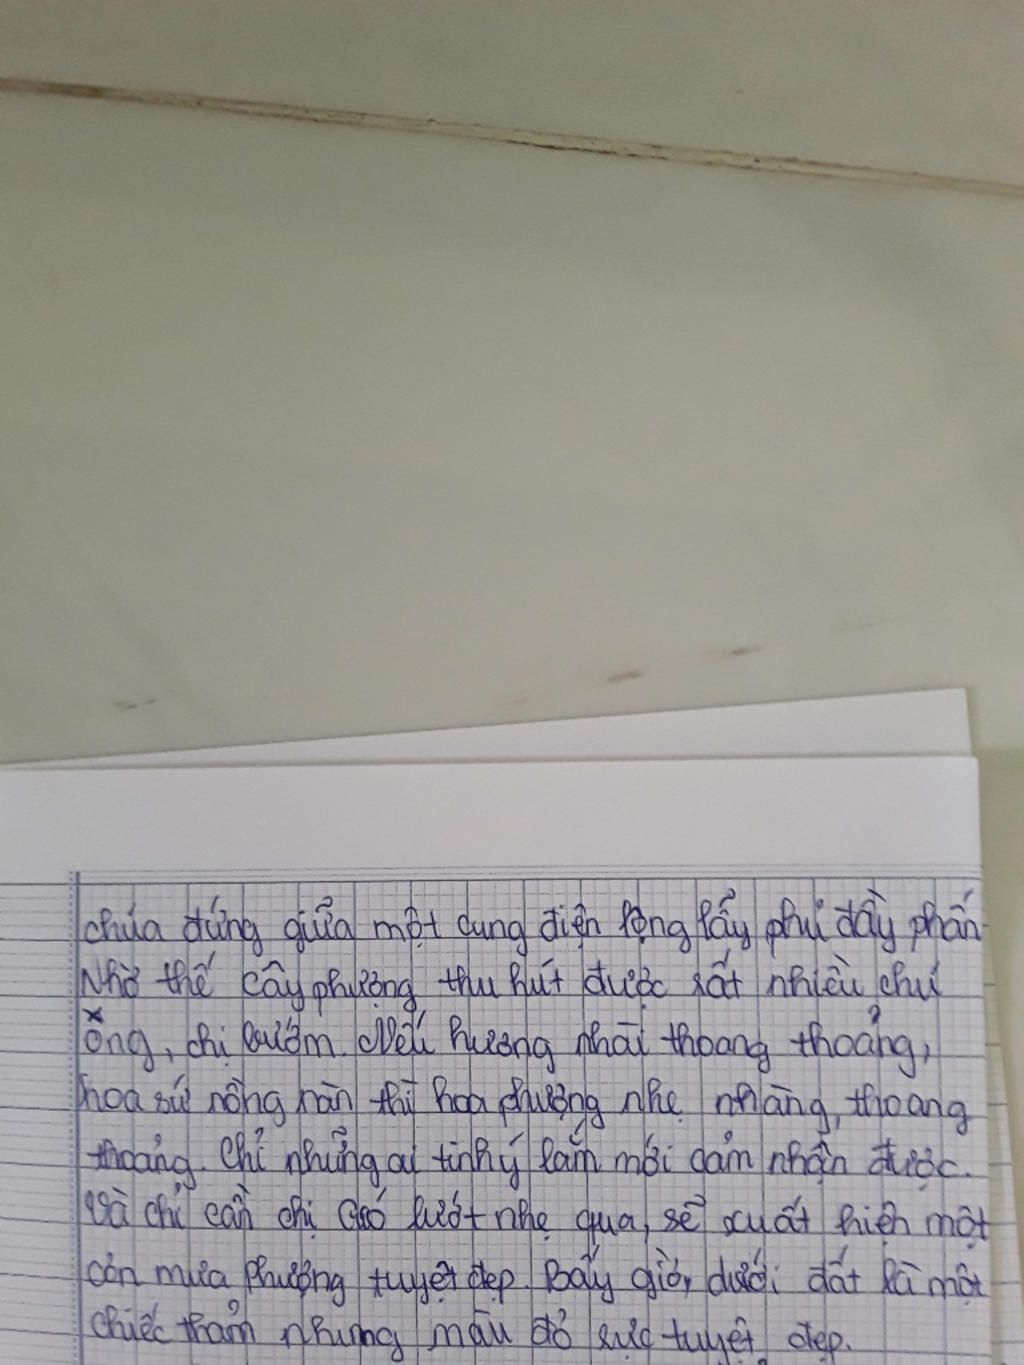 chúa đứng giữa một cung điện lộng lẫy phủ đầy phấn
Nhờ thế cây phượng thu hút được rất nhiều chú
ong, chị bướm. Nếu hương nhài thoang thoảng,
hoa sứ nồng nàn thì hoa phượng nhẹ nhàng, thoang
thoảng. Chỉ những ai tinh ý lắm mới cảm nhận được.
Và chỉ cần chị gió lướt nhẹ qua, sẽ xuất hiện một
cơn mưa phượng tuyệt đẹp. Bấy giờ, dưới đất là một
chiếc thảm nhung màu đỏ rực tuyệt đẹp.